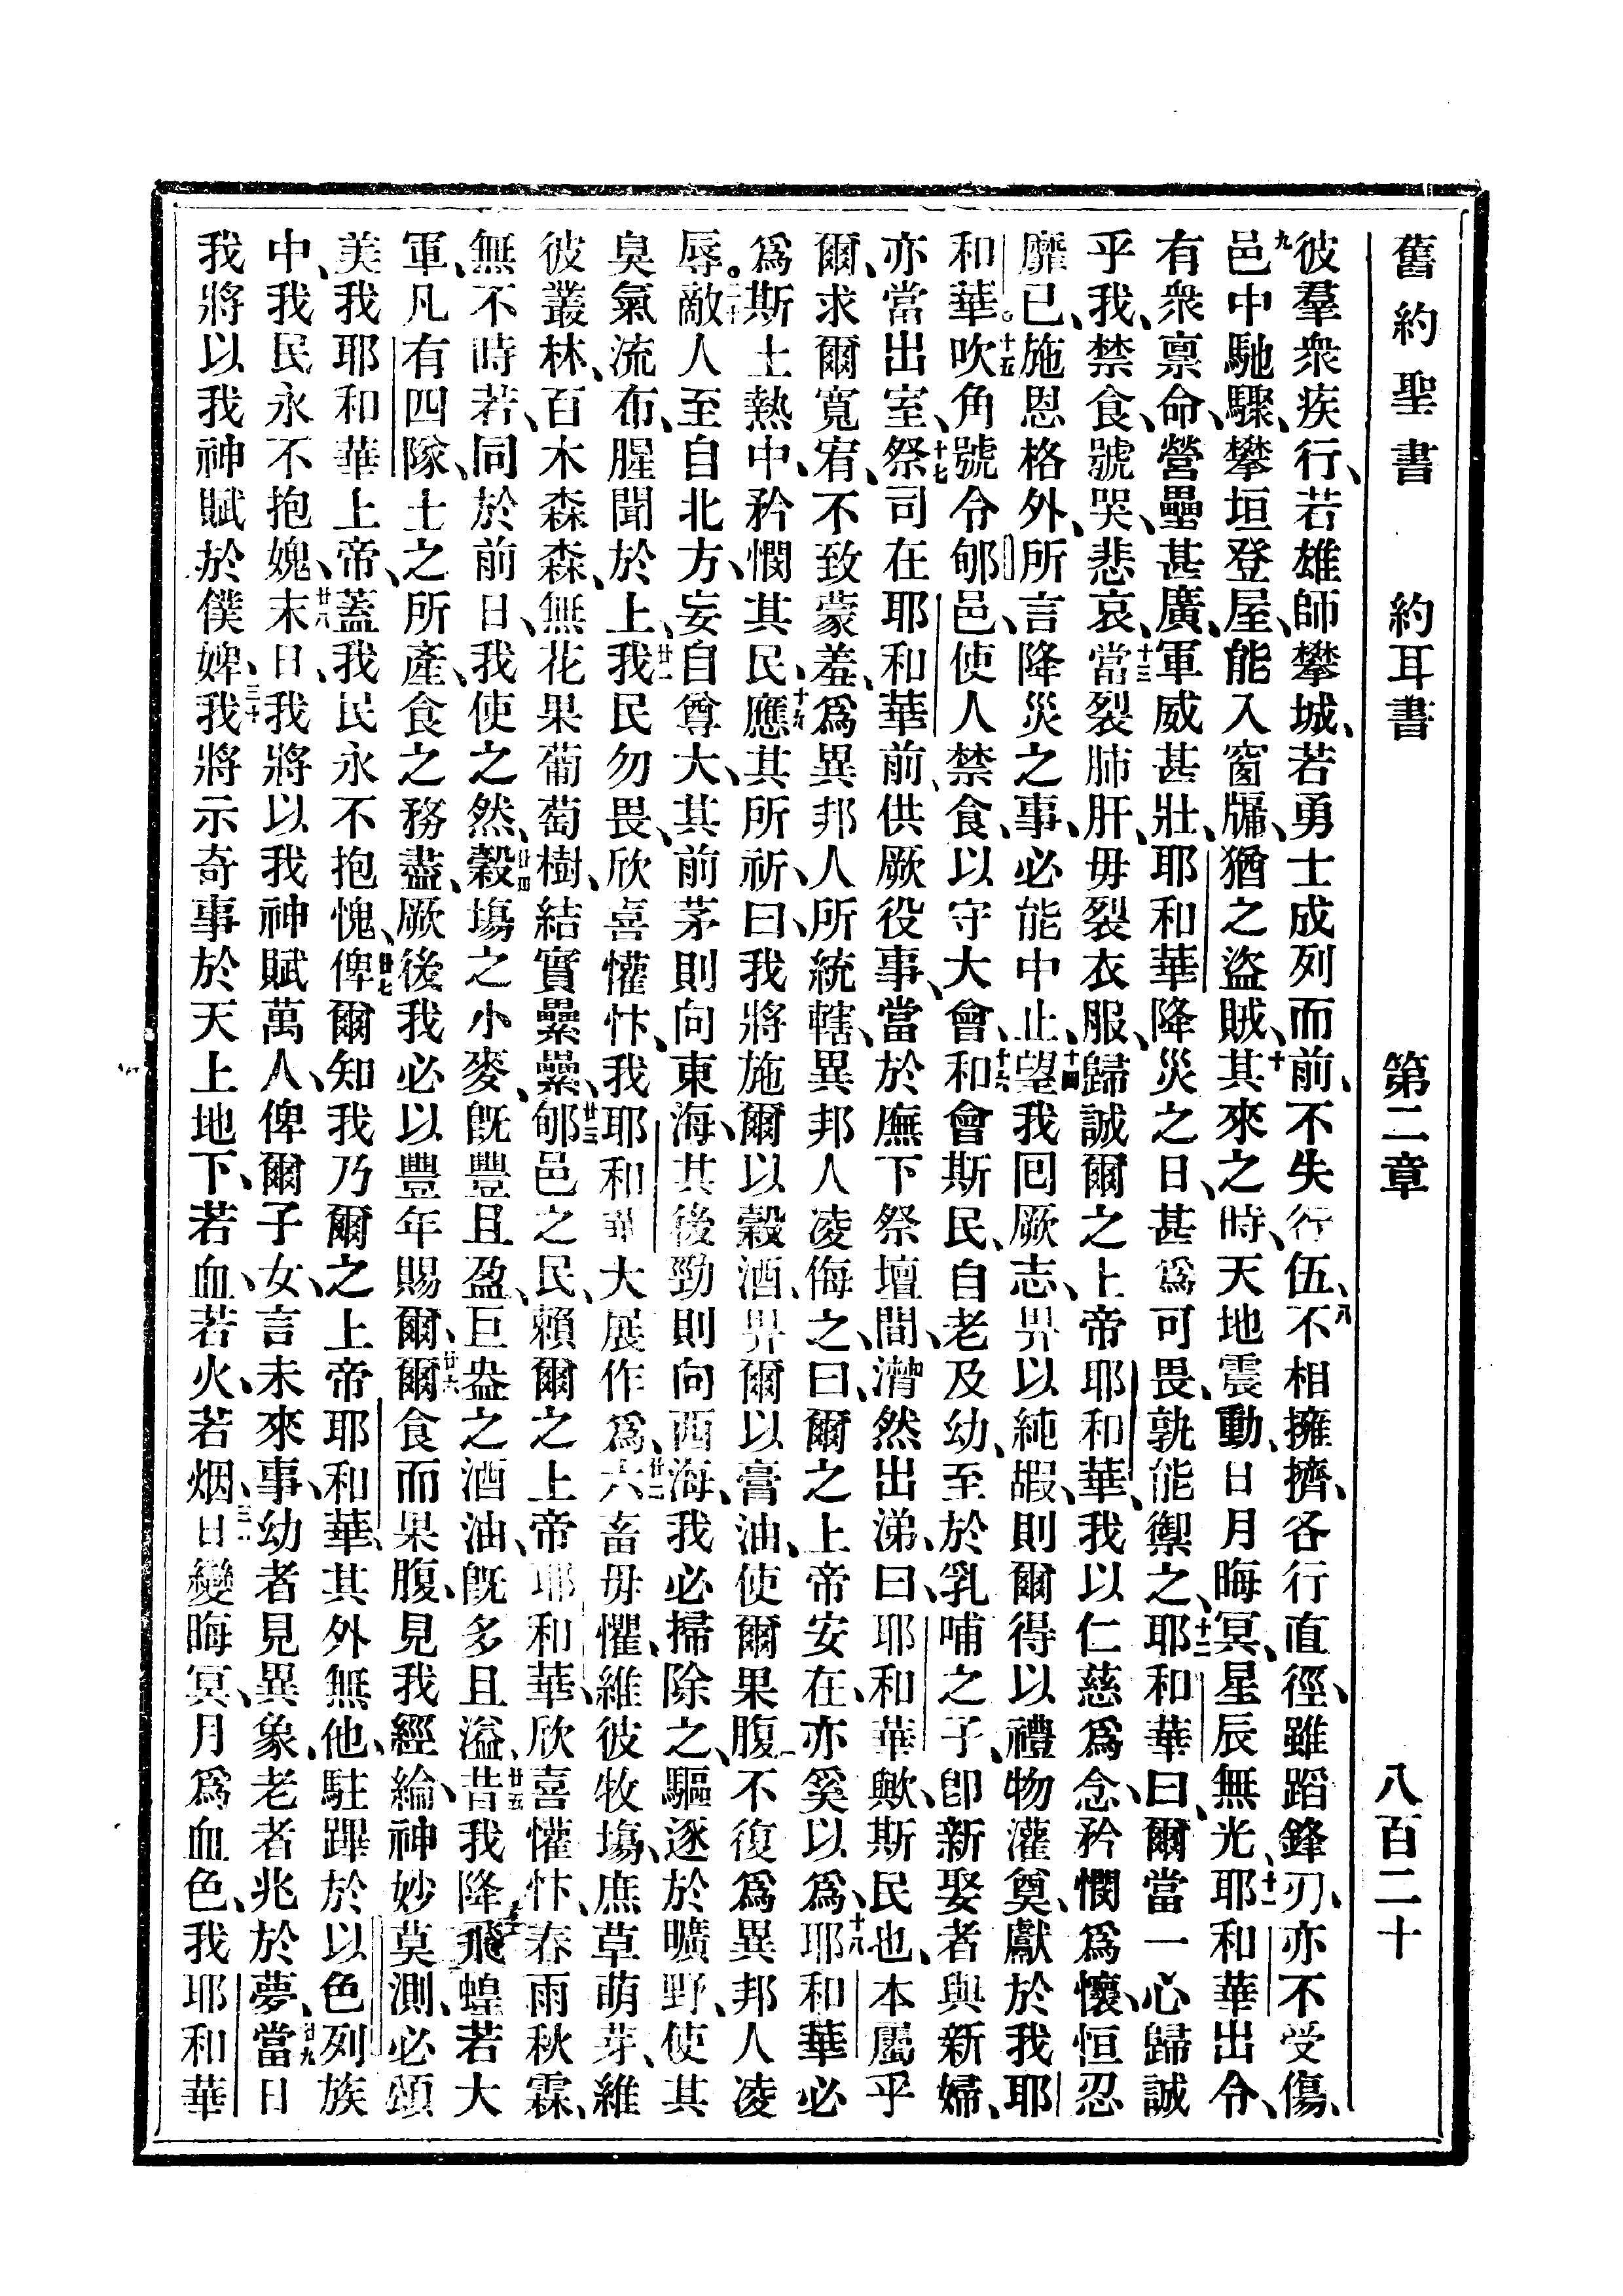 舊約聖書 約耳書 第二章 八百二十
彼羣衆疾行、若雄師攀城、若勇士成列而前、不失行伍、八不相擁擠、各行直徑、雖蹈鋒刃、亦不受傷、
九邑中馳驟、攀垣登屋、能入窗牖、猶之盜賊、十其來之時、天地震動、日月晦冥、星辰無光、十一耶和華出令、
有衆禀命、營壘甚廣、軍威甚壯、耶和華降災之日、甚爲可畏、孰能禦之、十二耶和華曰、爾當一心歸誠
乎我、禁食、號哭、悲哀、十三當裂肺肝、毋裂衣服、歸誠爾之上帝耶和華、我以仁慈爲念、矜憫爲懷、恒忍
靡已、施恩格外、所言降災之事、必能中止、十四望我回厥志、畀以純嘏、則爾得以禮物灌奠、獻於我耶
和華。十五吹角號令郇邑、使人禁食、以守大會、十六和會斯民、自老及幼、至於乳哺之子、卽新娶者與新婦、
亦當出室、十七祭司在耶和華前、供厥役事、當於廡下祭壇間、潸然出涕、曰、耶和華歟、斯民也、本屬乎
爾、求爾寬宥、不致蒙羞、爲異邦人所統轄、異邦人凌侮之、曰、爾之上帝安在、亦奚以爲、十八耶和華必
爲斯土熱中、矜憫其民、十九應其所祈、曰、我將施爾以穀酒、畀爾以膏油、使爾果腹、不復爲異邦人凌
辱。二十敵人至自北方、妄自尊大、其前茅則向東海、其後勁則向西海、我必掃除之、驅逐於曠野、使其
臭氣流布、腥聞於上、廿一我民勿畏、欣喜懽忭、我耶和華大展作爲、廿二六畜毋懼、維彼牧塲、庶草萌芽、維
彼叢林、百木森森、無花果葡萄樹、結實纍纍、廿三郇邑之民、賴爾之上帝耶和華、欣喜懽忭、春雨秋霖、
無不時若、同於前日、我使之然、廿四穀塲之小麥、旣豐且盈、巨盎之酒油、旣多且溢、廿五昔我降飛蝗若大
軍、凡有四隊、士之所產、食之務盡、厥後我必以豐年賜爾、廿六爾食而果腹、見我經綸、神妙莫測、必頌
美我耶和華上帝、蓋我民永不抱愧、廿七俾爾知我乃爾之上帝耶和華、其外無他、駐蹕於以色列族
中、我民永不抱媿、廿八末日、我將以我神賦萬人、俾爾子女、言未來事、幼者見異象、老者兆於夢、廿九當日
我將以我神賦於僕婢、三十我將示奇事於天上地下、若血、若火、若烟、三一日變晦冥、月爲血色、我耶和華